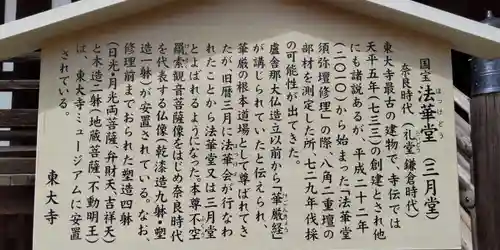 国宝 法華堂(三月堂)
ほっけどう
奈良時代(礼堂・鎌倉時代)
東大寺最古の建物で、寺伝では
天平五年(七三三)の創建とされ他
にも諸説あるが、平成二十二年
(二〇一〇)から始まった「法華堂
須弥壇修理」の際、八角二重壇の
部材を測定した所、七二九年伐採
の可能性が出てきた。
盧舎那大仏造立以前から「華厳経」
が講じられていたと伝えられ、
華厳の根本道場として尊ばれてき
たが、旧暦三月に法華会が行なわ
れたことから法華堂又は三月堂
とよばれるようになった。本尊不空
羂索観音菩薩像をはじめ奈良時代
を代表する仏像(乾漆造九躯・塑
造一躯)が安置されている。なお、
修理前までおられた塑造四躯
(日光・月光両菩薩、弁財天、吉祥天)
と木造二躯(地蔵菩薩、不動明王)
は、東大寺ミュージアムに安置
されている。
東大寺